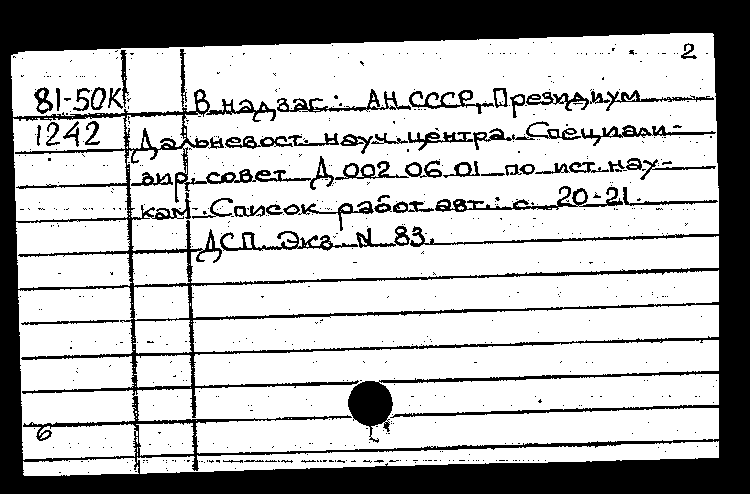 2
81-50К В надзаг.: АН СССР, Президиум
1242 Дальневост. науч. центра. Специали-
зир. совет Д 002 06 01 по ист. нау-
кам. Список работ авт.: с. 20-21.
ДСП. Экз. N 83.
6